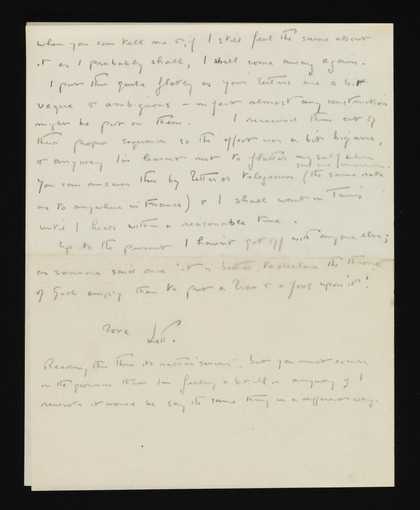 when you can tell me & if I still feel the same about
it as I probably shall, I shall come away again.
I put this quite flatly as your letters are a bit
vague & ambiguous - in fact almost any construction
might be put on them. I received them out of
their proper sequence so the effect was a bit bizarre,
& anyway I've learnt not to flatter myself when
You can answer this by letter or telegram (the same rate
as to anywhere in France) & I shall wait in Tunis
until I hear within a reasonable time.
Up to the present I haven't got off with anyone else;
as someone said once "it is better to declare the throne
of God empty than to put a and a fool upon it"!
Love
Reading this thro' its not ' ', but you must
in the that I'm feeling a bit ill & anyway if I
rewrote it would be say the same thing in a different way.